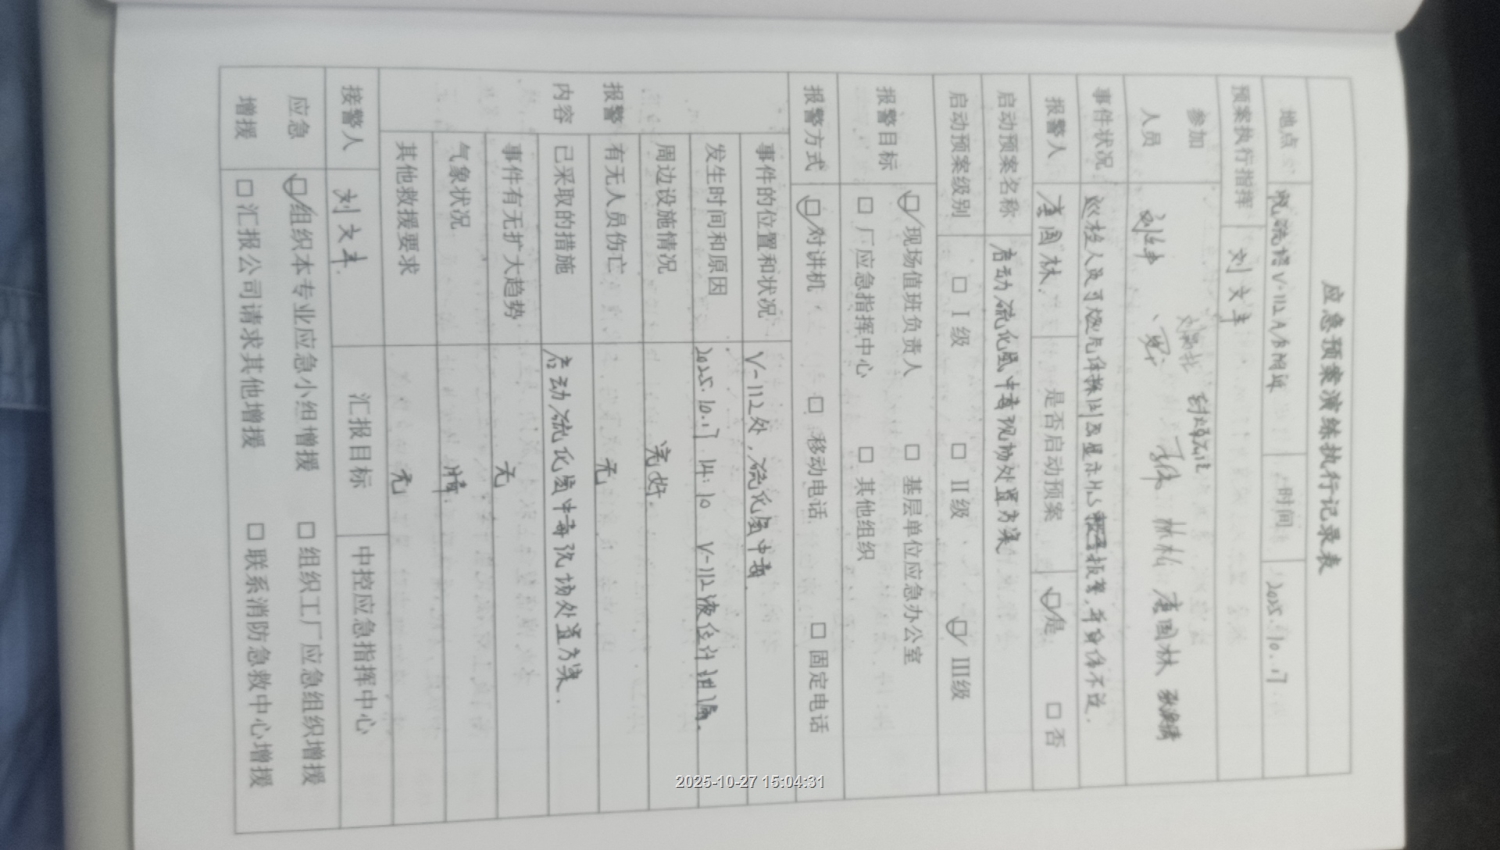 应急预案演练执行记录表
地点 脱硫塔V-112A/B附近 时间 2025.10.17
预案执行指挥 刘文丰
参加人员 唐国林
事件状况 巡检人员可燃气体探测仪显示H₂S报警,并身体不适.
报警人 唐国林 是否启动预案 ☑是 □否
启动预案名称 启动硫化氢中毒现场处置方案
启动预案级别 □ I 级 □ II 级 ☑ III级
报警目标 ☑现场值班负责人 □ 基层单位应急办公室
□ 厂应急指挥中心 □ 其他组织
报警方式 ☑对讲机 □ 移动电话 □ 固定电话
报警内容
事件的位置和状况 V-112处,硫化氢中毒.
发生时间和原因 2025.10.17 14:10 V-112液位计泄漏.
周边设施情况 完好.
有无人员伤亡 无
已采取的措施 启动硫化氢中毒现场处置方案.
事件有无扩大趋势 无
气象状况 晴
其他救援要求 无
接警人 刘文丰 汇报目标 中控应急指挥中心
应急增援 ☑组织本专业应急小组增援 □ 组织工厂应急组织增援
□ 汇报公司请求其他增援 □ 联系消防急救中心增援
2025-10-27 15:04:31